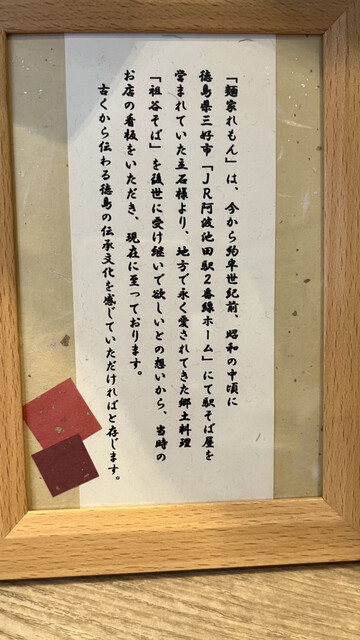 「麺家れもん」は、今から約半世紀前、昭和の中頃に
徳島県三好市「JR阿波池田駅2番線ホーム」にて駅そば屋を
営まれていた立石様より、地方で永く愛されてきた郷土料理
「祖谷そば」を後世に受け継いで欲しいとの想いから、当時の
お店の看板をいただき、現在に至っております。
古くから伝わる徳島の伝承文化を感じていただければと存じます。